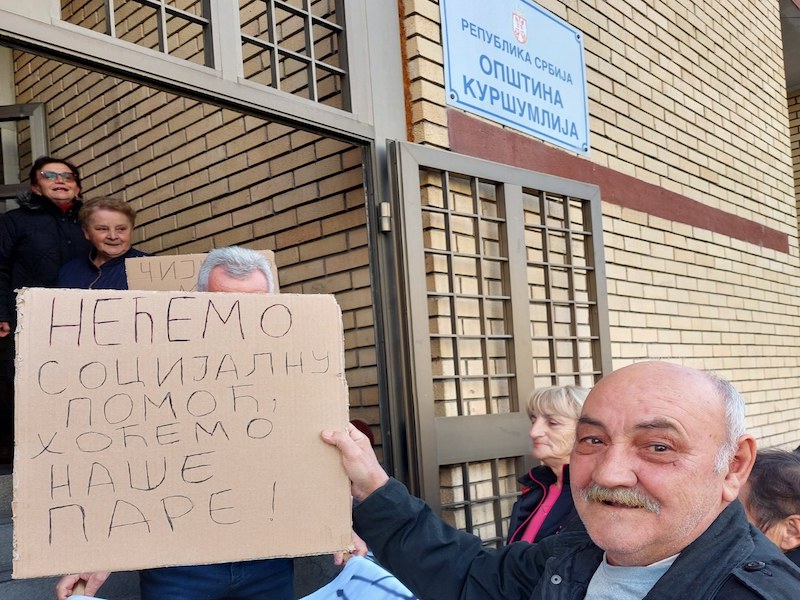 РЕПУБЛИКА СРБИЈА
ОПШТИНА
КУРШУМЛИЈА
ЧИЈ
НЕЋЕМО
СОЦИЈАЛНУ
ПОМОЋ,
ХОЋЕМО
НАШЕ
ПАРЕ!